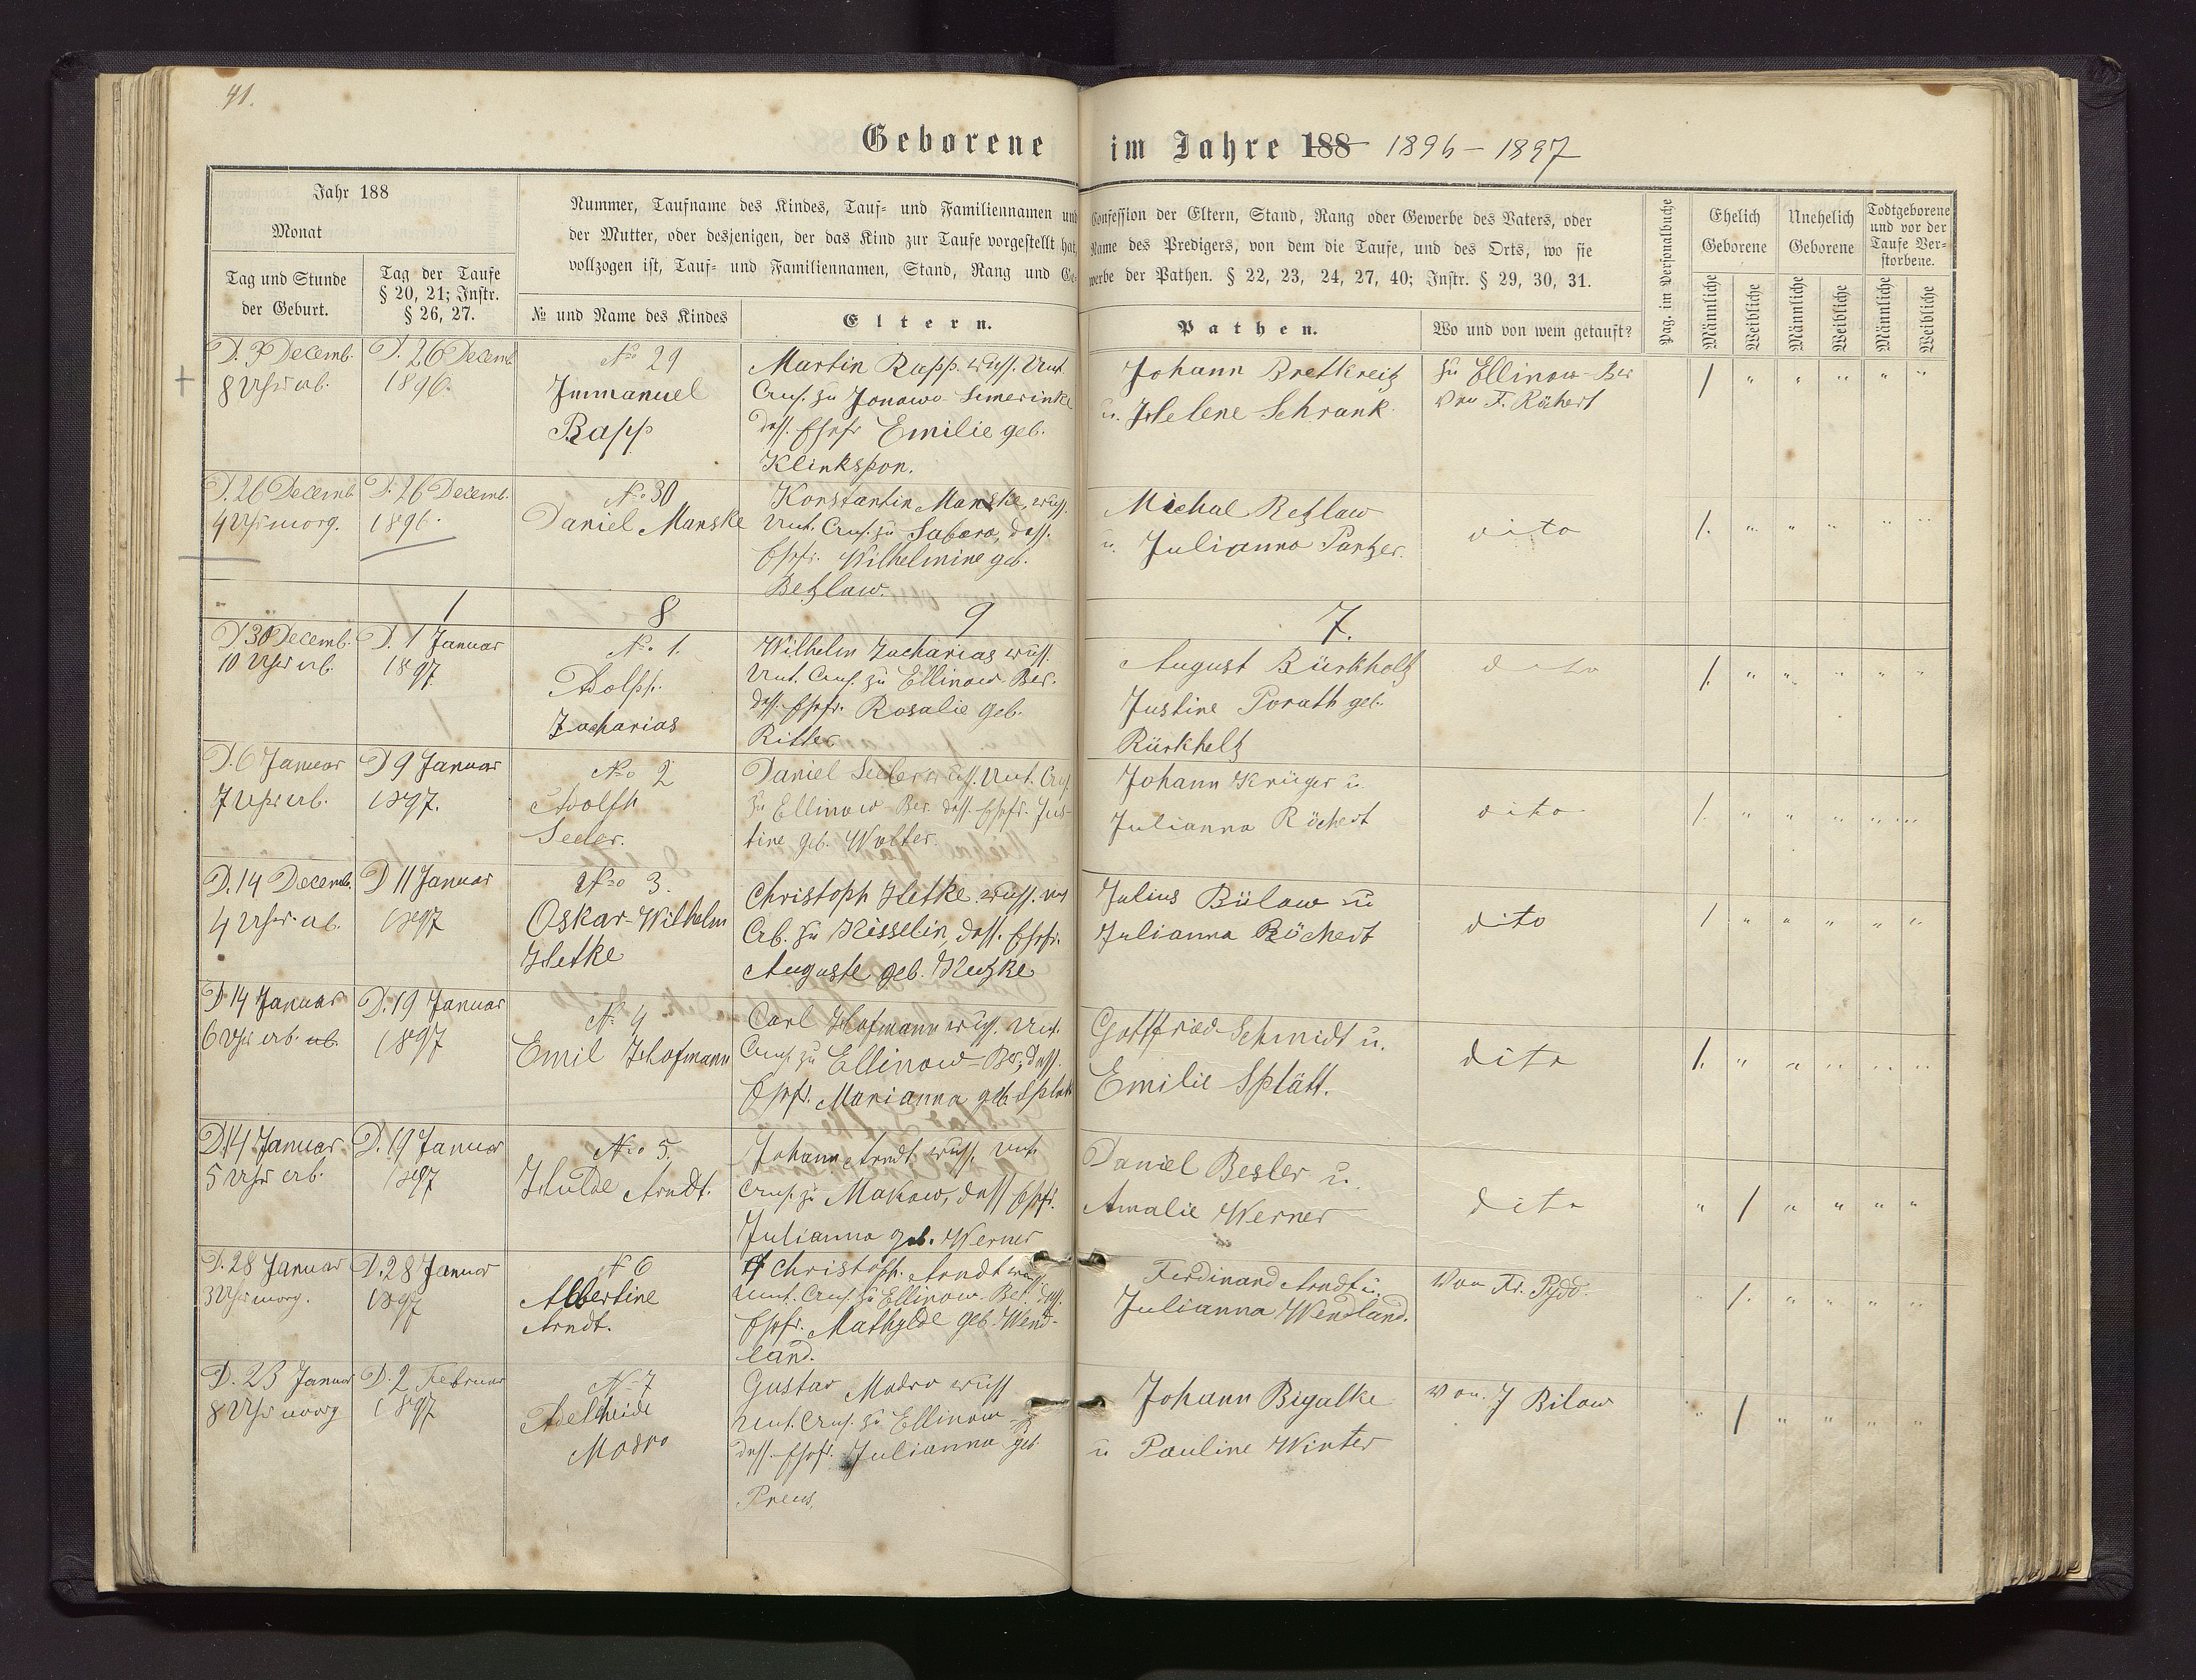 41.
Geborene im Jahre 188 1896-1897
Jahr 188
Monat
Tag und Stunde
der Geburt.
Tag der Taufe
§ 20, 21; Instr.
§ 26, 27.
Nummer, Taufname des Kindes, Tauf- und Familiennamen und
der Mutter, oder desjenigen, der das Kind zur Taufe vorgestellt hat,
vollzogen ist, Tauf- und Familiennamen, Stand, Rang und Ge-
№ und Name des Kindes
Eltern.
Confession der Eltern, Stand, Rang oder Gewerbe des Vaters, oder
Name des Predigers, von dem die Taufe, und des Orts, wo sie
werbe der Pathen. § 22, 23, 24, 27, 40; Instr. § 29, 30, 31.
Pathen.
Wo und von wem getauft?
Pag. im Personalbuche
Ehelich
Geborene
Unehelich
Geborene
Todtgeborene
und vor der
Taufe Ver-
storbene.
Männliche
Weibliche
Männliche
Weibliche
Männliche
Weibliche
Decemb.
8 Uhr ab.
D. 26 Decemb
1896.
No 29
Immanuel
Rapp
Martin Rapp.
zu Janowo-Semerinke
Ehefr Emilie geb.
Klinkspon.
Johann Bretkreitz
u. Helene Schrank.
zu Ellinow-Ber
von F. Röchert
D. 26 Decemb.
4 Uhr morg.
D. 26 Decemb.
1896.
No 30
Daniel Manske
Konstantin Manske,
zu Sabara, dess.
Ehefr. Wilhelmine geb.
Betzlaw.
Michal Retzlaw
u. Julianna Pantzer.
dito
1
8
9
7.
D 30 Decemb.
10 Uhr ab.
D. 1 Januar
1897.
No 1.
Adolph.
Zacharias
Wilhelm Zacharias
zu Ellinow-Ber.
dess. Ehefr. Rosalie geb.
Ritter
August Bürkholtz
Justine Porath geb.
Bürkholtz
dito
D. 6 Januar
7 Uhr ab.
D 9 Januar
1897.
No 2
Adolph
Seeler.
Daniel Seeler
zu Ellinow-Ber. dess. Ehefr. Jus-
tine geb. Wolter.
Johann Krüger u.
Julianna Röchert
dito
D. 14 Decemb.
4 Uhr ab.
D 11 Januar
1897
No 3.
Oskar-Wilhelm
Hetke
Christoph Hetke
zu Kisselin, dess. Ehefr.
Auguste geb.
Julius Bülow u
Julianna Röchert
dito
D 14 Januar
6 Uhr ab. ab.
D. 19 Januar
1897
No 4
Emil Hofmann
Carl Hofmann
zu Ellinow-Ber, dess.
Ehefr. Marianna geb.
Gottfried Schmidt u.
Emilie Splätt.
dito
D 14 Januar
5 Uhr ab.
D. 19 Januar
1897
No 5.
Hulde Arndt.
Johann Arndt
zu Makow, dess Ehefr.
Julianna geb. Werner
Daniel Besler u.
Amalie Werner
dito
D. 28 Januar
3 Uhr morg.
D. 28 Januar
1897
No 6
Albertine
Arndt.
Christoph. Arndt
zu Ellinow-Ber. dess.
Ehefr. Mathylde geb. Wend-
land.
Ferdinand Arndt u.
Julianna Wendland.
Von Fr.
D. 23 Januar
8 Uhr morg
D. 2 Februar
1897
No 7
Adelheide
Modro
Gustav Modro
zu Ellinow
dess. Ehefr. Julianna geb.
Preus.
Johann Bigalke
u Pauline Winter
Von. J Bilow